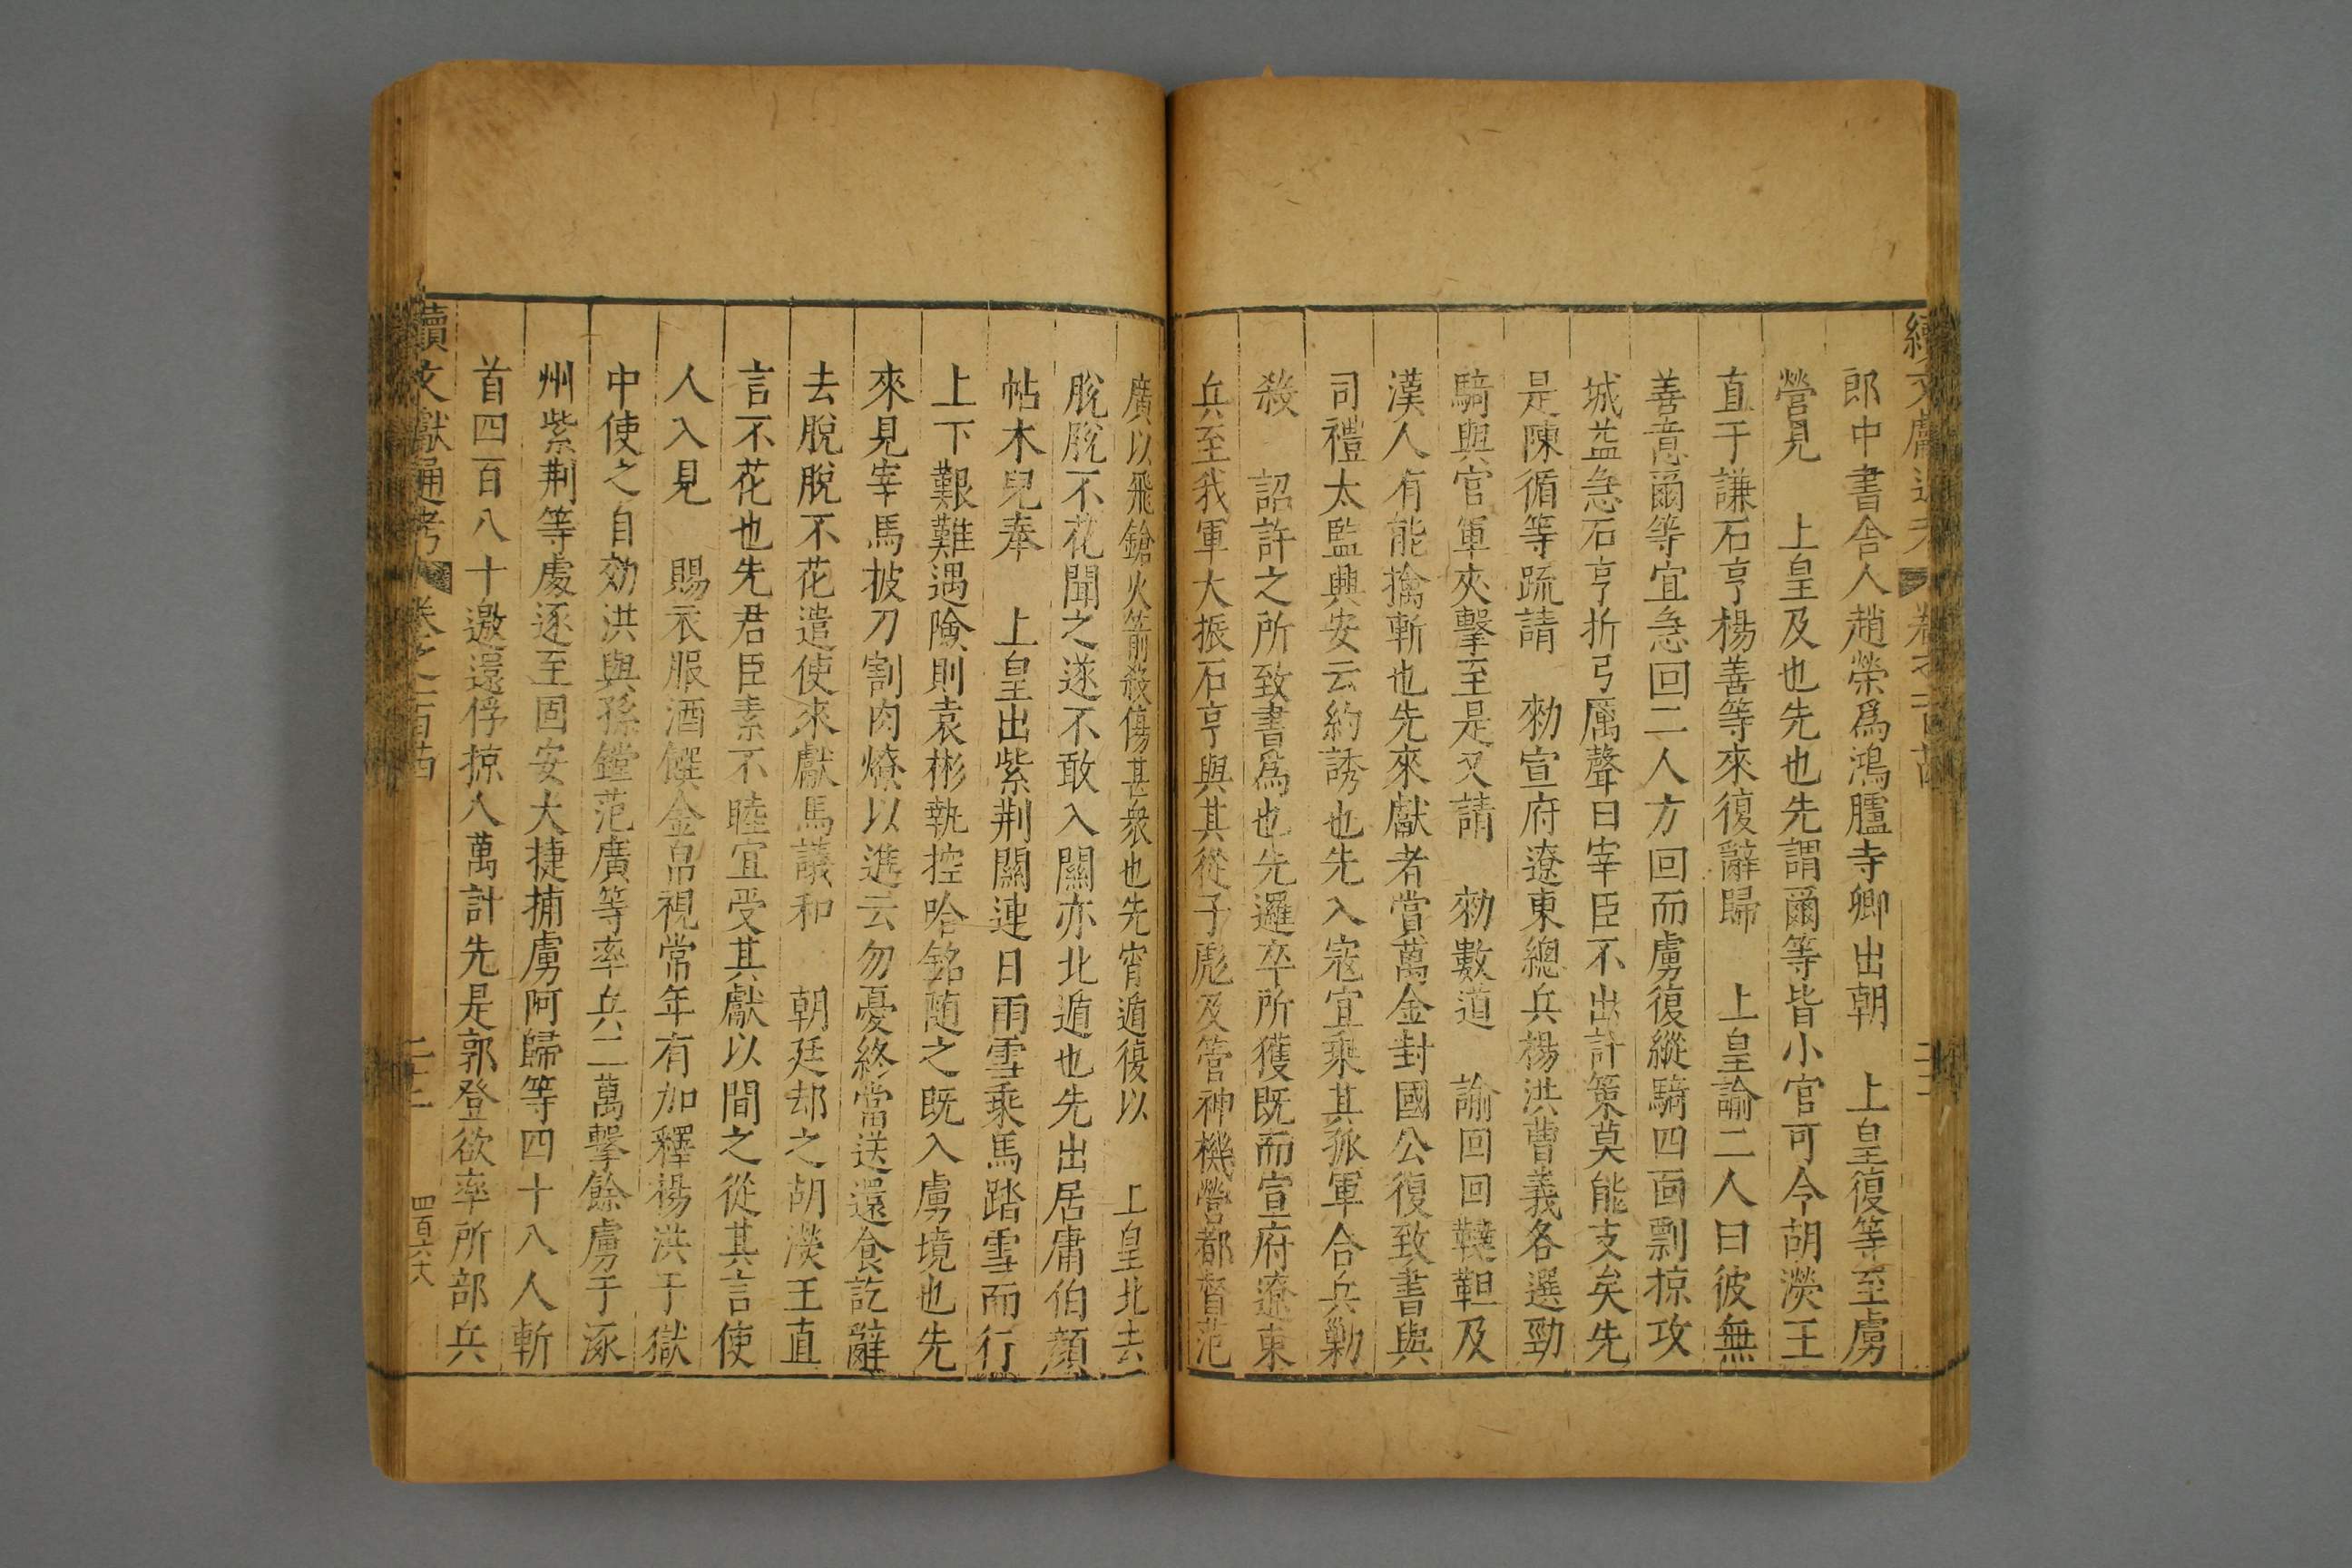 續文獻通考 卷之二百
郎中書舍人趙榮爲鴻臚寺卿出朝 上皇復等至虜
營見 上皇及也先也先謂爾等皆小官可令胡濙王
直于謙石亨楊善等來復辭歸 上皇諭二人曰彼無
善意爾等宜急回二人方回而虜復縱騎四面剽掠攻
城益急石亨折弓厲聲曰宰臣不出計策莫能支矣先
是陳循等疏請 勑宣府遼東總兵楊洪曹義各選勁
騎與官軍夾擊至是又請 勑數道 諭回回韃靼及
漢人有能擒斬也先來獻者賞萬金封國公復致書與
司禮太監興安云約誘也先入寇宜乘其孤軍合兵勦
殺 詔許之所致書爲也先邏卒所獲既而宣府遼東
兵至我軍大振石亨與其從子彪及管神機營都督范
廣以飛鎗火箭殺傷甚衆也先宵遁復以 上皇北去
脫脫不花聞之遂不敢入關亦北遁也先出居庸伯顏
帖木兒奉 上皇出紫荆關連日雨雪乘馬踏雪而行
上下艱難遇險則袁彬執控哈銘随之既入虜境也先
來見宰馬披刀割肉燎以進云勿憂終當送還食訖辭
去脫脫不花遣使來獻馬議和 朝廷却之胡濙王直
言不花也先君臣素不睦宜受其獻以間之從其言使
人入見 賜衣服酒饌金帛視常年有加釋楊洪于獄
中使之自効洪與孫鏜范廣等率兵二萬擊餘虜于涿
州紫荆等處逐至固安大捷捕虜阿歸等四十八人斬
首四百八十邀還俘掠人萬計先是郭登欲率所部兵
續文獻通考 卷之二百 二十二 四百六六